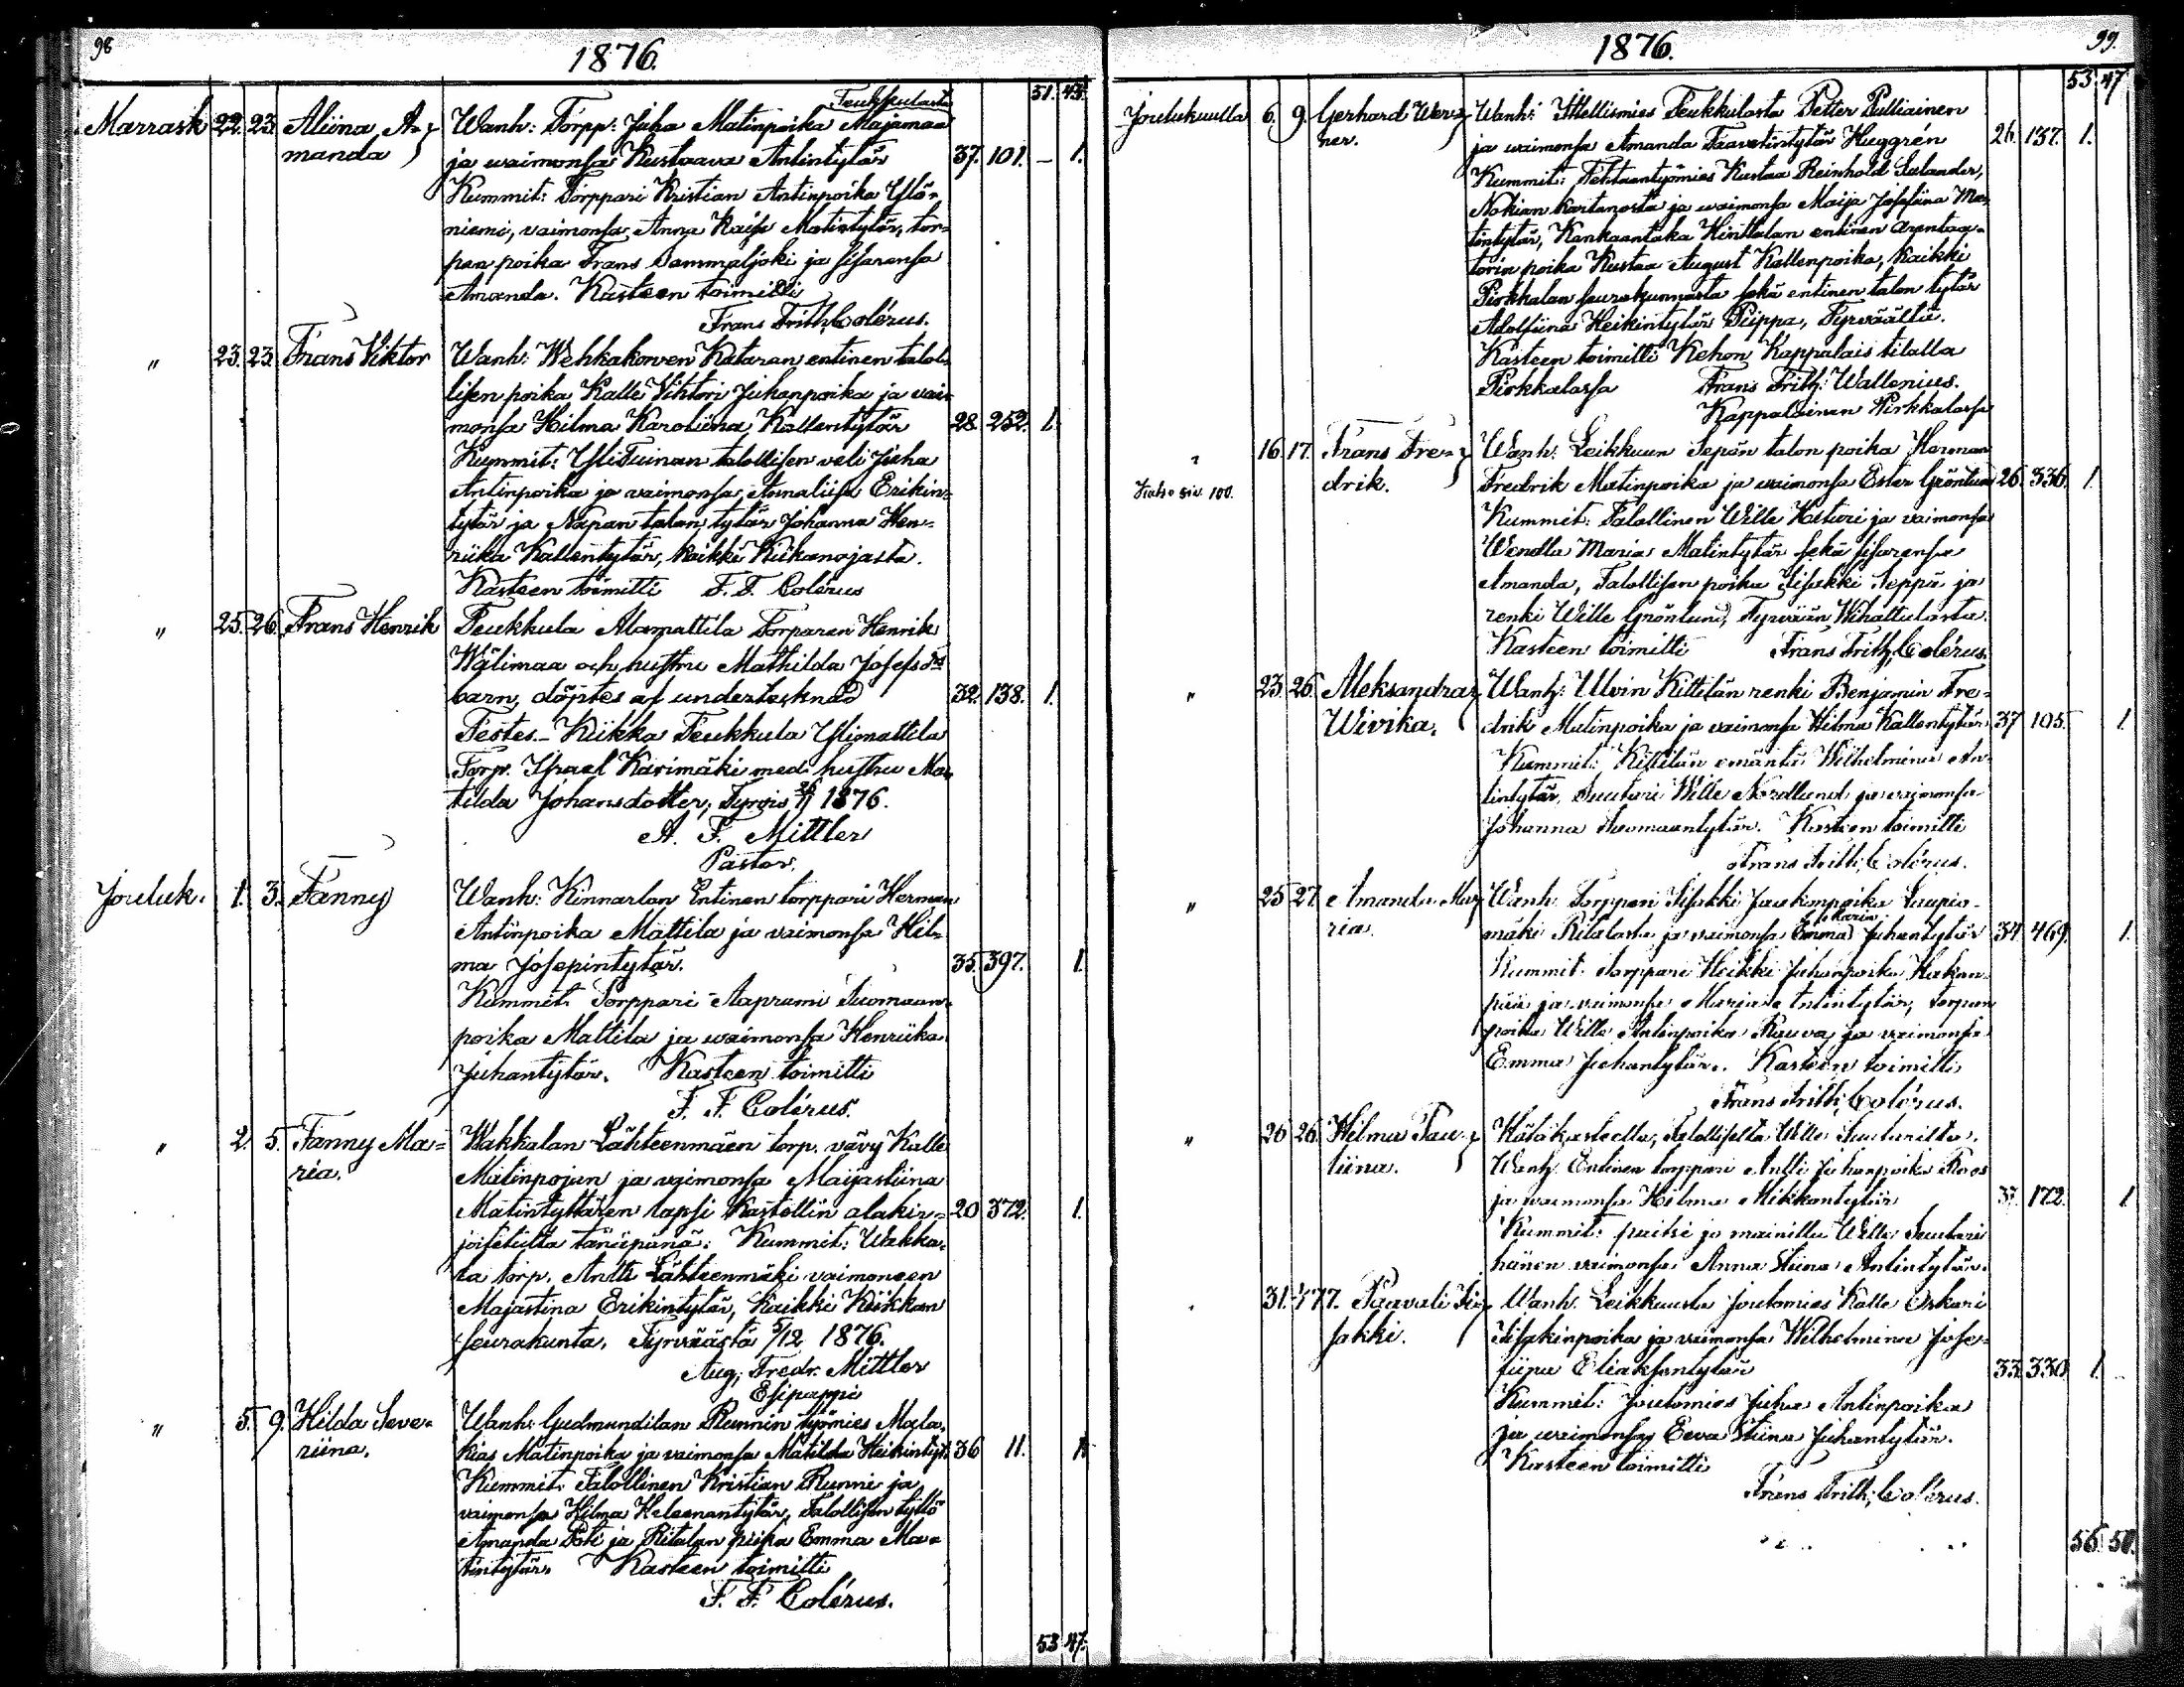 98
1876.
51. 43.
Marrask 22. 23. Aliina A=
manda
Teukkulasta
Wanh: Torpp: Juha Matinpoika Majamaa
ja waimonsa Kustaava Antintytär 37. 101. – 1.
Kummit: Torppari Kristian Antinpoika Ylö=
niemi, vaimonsa Anna Kaisa Matintytär, tor=
pan poika Frans Sammaljoki ja sisarensa
Amanda. Kasteen toimitti
Frans Frith. Colérus.
" 23. 23. Frans Viktor
Wanh: Wehkakorven Kataran entinen talol=
lisen poika Kalle Vihtori Juhanpoika ja vai=
monsa Hilma Karoliina Kallentytär 28. 252. 1.
Kummit: YliTuinan talollisen veli Juha
Antinpoika ja vaimonsa Annaliisa Erikin=
tytär ja Näpan talon tytär Johanna Hen=
riika Kallentytär, kaikki Kiikanojasta.
Kasteen toimitti F. F. Colérus
" 25. 26. Frans Henrik
Teukkula Alamattila Torparen Henrik
Wälimaa och hustru Mathilda Josefsd:r
barn, döptes af undertecknad 32. 138. 1.
Testes.- Kiikka Teukkula Ylimattila
Torp. Israel Karimäki med hustru Ma=
tilda Johansdotter, Tyrvis 26/11 1876.
A. F. Mittler
Pastor.
Jouluk. 1. 3. Fanny
Wanh: Kinnarlan Entinen torppari Herman
Antinpoika Mattila ja vaimonsa Hil=
ma Josepintytär. 35. 397. 1.
Kummit: Torppari Aaprami Tuomaan=
poika Mattila ja waimonsa Henriika
Juhantytär. Kasteen toimitti
F. F. Colérus.
" 2. 5. Fanny Ma=
ria.
Wakkalan Lähteenmäen torp. vävy Kalle
Matinpojan ja vaimonsa Maijastiina
Matintyttären lapsi Kastettiin alakir= 20 372. 1.
joitetulta tänäpänä: Kummit: Wakka=
la torp. Antti Lähteenmäki vaimoneen
Majastina Erikintytär, Kaikki Kiikkan
seurakunta, Tyrväästä 5/12 1876.
Aug. Fredr. Mittler
Esipappi
" 5. 9. Hilda Seve=
riina.
Wanh: Gudmundilan Runnin työmies Mala=
kias Matinpoika ja vaimonsa Matilda Heikintyt: 36 11. 1.
Kummit: Talollinen Kristian Runni ja
vaimonsa Hilma Heleenantytär, Talollisen tyttö
Amanda ja Ritalan piika Emma Ma=
tintytär. Kasteen toimitti
F. F. Colérus.
53 47.
1876.
99.
53 47
Joulukuulla 6. 9. Gerhard Wer=
ner.
Wanh: Itsellismies Teukkulasta Petter Pulliainen
ja waimonsa Amanda Taavetintytär Huggrén 26. 137. 1.
Kummit: Tehtaantyömies Kustaa Reinhold Salander,
Nokian kartanosta ja waimonsa Maija Josefiina Ma=
tintytär, Kankaantaka Hinttalan entinen arentaa=
torin poika Kustaa August Kallenpoika, kaikki
Pirkkalan seurakunnasta sekä entinen talon tytär
Adolfiina Heikintytär Piippa, Tyrväältä.
Kasteen toimitti Kehon Kappalais tilalla
Pirkkalassa Frans Frith: Wallenius.
Kappalainen Pirkkalassa
" 16. 17. Frans Fre=
drik.
Katso siv. 100.
Wanh: Leikkuun Sepän talon poika Herman
Fredrik Matinpoika ja waimonsa Ester Grönlund 26. 336. 1
Kummit: Talollinen Wille Haturi ja vaimonsa
Wendla Maria Matintytär sekä sisarensa
Amanda, Talollisen poika Iisakki Seppä ja
renki Wille Grönlund, Tyrvään Wihattulasta.
Kasteen toimitti Frans Frith. Colérus.
" 23. 26. Aleksandra
Wivika.
Wanh: Ulvin Kittilän renki Benjamin Fre=
drik Matinpoika ja vaimonsa Hilma Kallentytär 37 105. 1.
Kummit: Kittilän emäntä Wilhelmina An=
tintytär, Suutari Wille Nordlund ja vaimonsa
Johanna Tuomaantytär. Kasteen toimitti
Frans Frith. Colérus.
" 25 27. Amanda Ma=
ria.
Wanh: Torppari Iisakki Jaakonpoika Taupia=
Maria
mäki Ritalasta ja vaimonsa Emma Juhantytär 34. 469. 1.
Kummit: Torppari Heikki Juhanpoika Hakan=
pää ja vaimonsa Maria Antintytär, torpan
poika Wille Antinpoika Rauva ja vaimonsa
Emma Juhantytär. Kasteen toimitti
Frans Frith. Colérus.
" 26 26. Hilma Pau=
liina.
Hätäkasteella, Talolliselta Wille Suutarilta.
Wanh: Entinen torppari Antti Juhanpoika Roos
ja vaimonsa Hilma Mikkontytär 33. 172. 1
Kummit: paitsi jo mainittu Wille Suutari
hänen vaimonsa Anna Stiina Antintytär.
31. 7. Paavali Ii=
sakki.
Wanh: Leikkuusta Joutomies Kalle Oskari
Iisakinpoika ja vaimonsa Wilhelmina Jose=
fiina Eliaksentytär 33. 330. 1.
Kummit: Joutomies Juha Antinpoika
ja waimonsa Eeva Stiina Juhantytär.
Kasteen toimitti
Frans Frith. Colérus.
56 50.